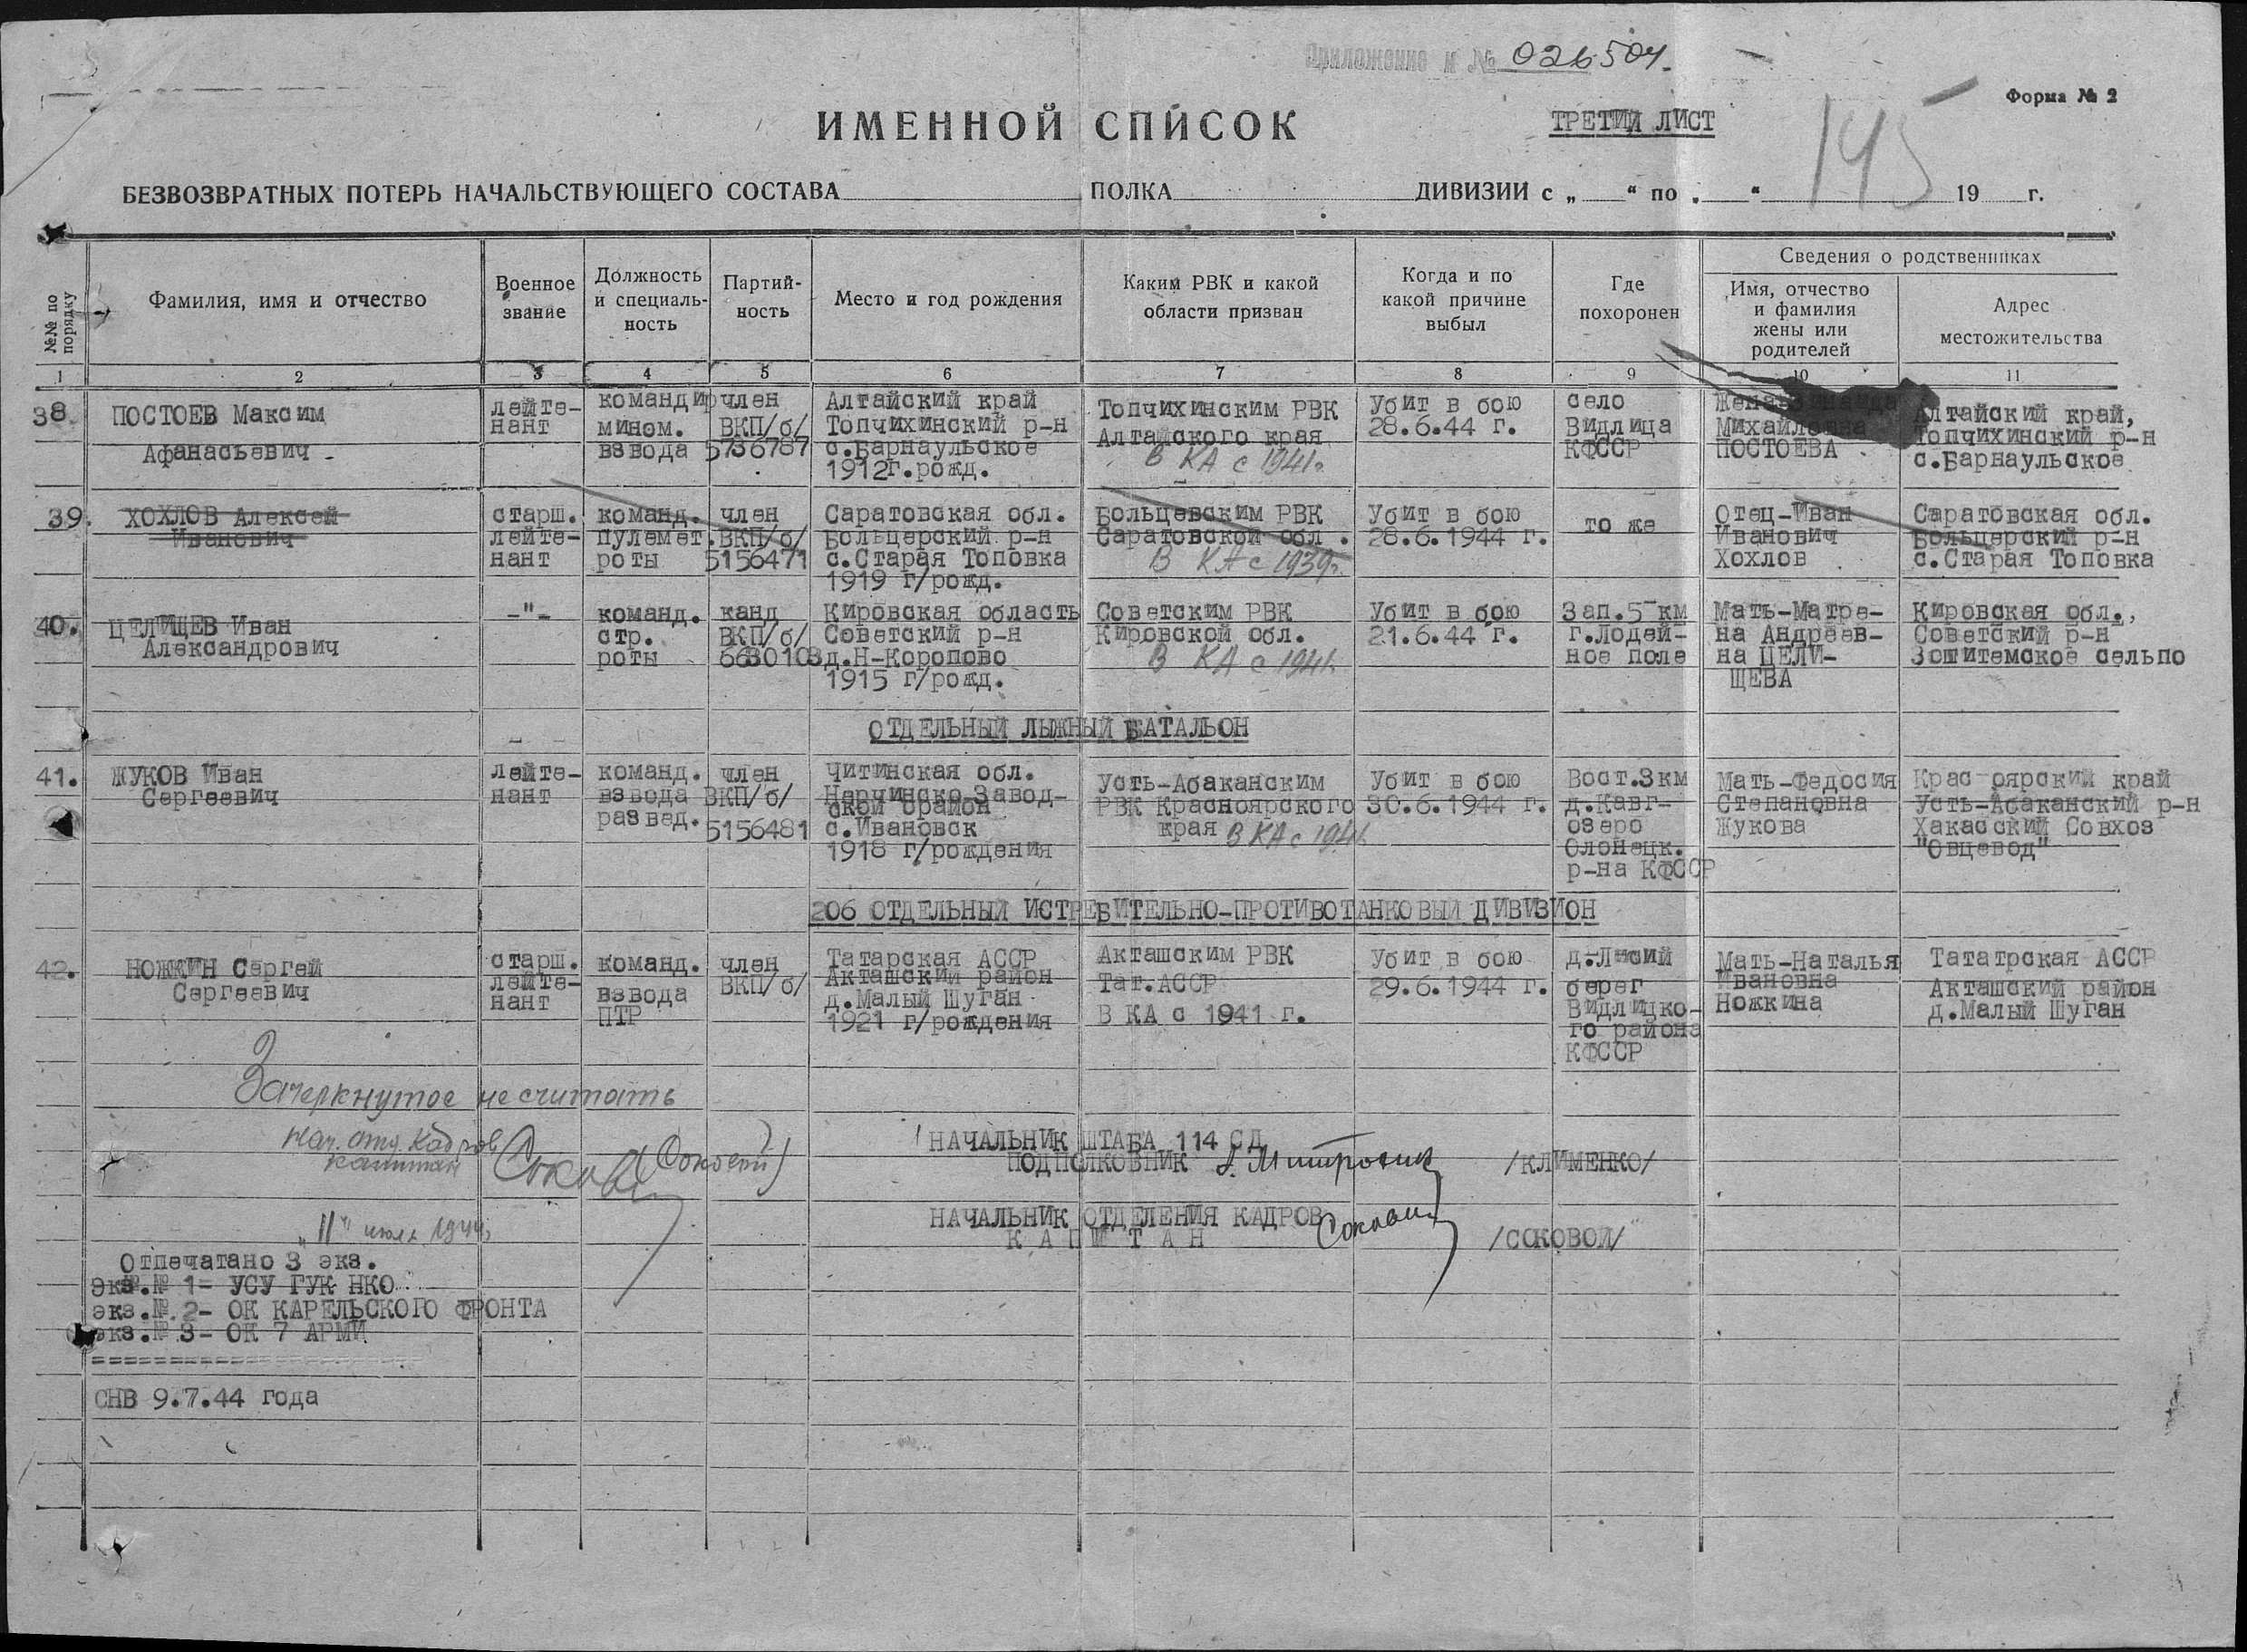 Приложение к № 026504.
Форма № 2
ИМЕННОЙ СПИСОК
ТРЕТИЙ ЛИСТ
145
БЕЗВОЗВРАТНЫХ ПОТЕРЬ НАЧАЛЬСТВУЮЩЕГО СОСТАВА ПОЛКА ДИВИЗИИ с „ “ по „ “ 19 г.
№№ по порядку
Фамилия, имя и отчество
Военное звание
Должность и специаль-ность
Партий-ность
Место и год рождения
Каким РВК и какой области призван
Когда и по какой причине выбыл
Где похоронен
Сведения о родственниках
Имя, отчество и фамилия жены или родителей
Адрес местожительства
1 2 3 4 5 6 7 8 9 10 11
38. ПОСТОЕВ Максим
Афанасьевич
лейте-
нант
командир
мином.
взвода
член
ВКП/б/
5736787
Алтайский край
Топчихинский р-н
с.Барнаульское
1912г.рожд.
Топчихинским РВК
Алтайского края
В КА с 1941г.
Убит в бою
28.6.44 г.
село
Видлица
КФССР
Жена
Михайловна
ПОСТОЕВА
Алтайский край,
Топчихинский р-н
с.Барнаульское
39. ХОХЛОВ Алексей
Иванович
старш.
лейте-
нант
команд.
пулемет.
роты
член
ВКП/б/
5156471
Саратовская обл.
Больцерский р-н
с.Старая Топовка
1919 г/рожд.
Больцевским РВК
Саратовской обл.
В КА с 1939г.
Убит в бою
28.6.1944 г.
то же
Отец-Иван
Иванович
Хохлов
Саратовская обл.
Больцерский р-н
с.Старая Топовка
40. ЦЕЛИЩЕВ Иван
Александрович
-"-
команд.
стр.
роты
канд
ВКП/б/
6630103
Кировская область
Советский р-н
д.Н-Коропово
1915 г/рожд.
Советским РВК
Кировской обл.
В КА с 1941г.
Убит в бою
21.6.44 г.
Зап.5 км
г.Лодей-
ное поле
Мать-Матре-
на Андреев-
на ЦЕЛИ-
ЩЕВА
Кировская обл.,
Советский р-н
Зошитемское сельпо
ОТДЕЛЬНЫЙ ЛЫЖНЫЙ БАТАЛЬОН
41. ЖУКОВ Иван
Сергеевич
лейте-
нант
команд.
взвода
развед.
член
ВКП/б/
5156481
Читинская обл.
Нерчинско Завод-
ской орайон
с.Ивановск
1918 г/рождения
Усть-Абаканским
РВК Красноярского
края В КА с 1941г.
Убит в бою
30.6.1944 г.
Вост.3км
д.Кавг-
озеро
Олонецк.
р-на КФССР
Мать-Федосия
Степановна
Жукова
Крас оярский край
Усть-Абаканский р-н
Хакасский Совхоз
"Овцевод"
206 ОТДЕЛЬНЫЙ ИСТРЕБИТЕЛЬНО-ПРОТИВОТАНКОВЫЙ ДИВИЗИОН
42. НОЖКИН Сергей
Сергеевич
старш.
лейте-
нант
команд.
взвода
ПТР
член
ВКП/б/
Татарская АССР
Акташский район
д.Малый Шуган
1921 г/рождения
Акташским РВК
Тат.АССР
В КА с 1941 г.
Убит в бою
29.6.1944 г.
д.Лисий
берег
Видлицко-
го района
КФССР
Мать-Наталья
Ивановна
Ножкина
Тататрская АССР
Акташский район
д.Малый Шуган
Зачеркнутое не считать
Нач. отд. Кадров
капитан (Соковой)
„11“ июля 1944г.
НАЧАЛЬНИК ШТАБА 114 СД
ПОДПОЛКОВНИК /КЛИМЕНКО/
НАЧАЛЬНИК ОТДЕЛЕНИЯ КАДРОВ
КАПИТАН /СОКОВОЙ/
Отпечатано 3 экз.
Экз.№ 1- УСУ ГУК НКО
экз.№ 2- ОК КАРЕЛЬСКОГО ФРОНТА
экз.№ 3- ОК 7 АРМИ
СНВ 9.7.44 года